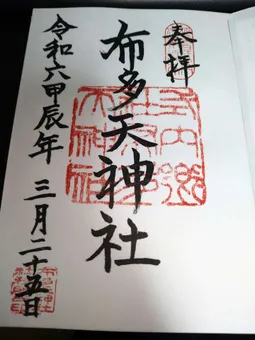 奉拝
布多天神社
令和六甲辰年 三月二十五日